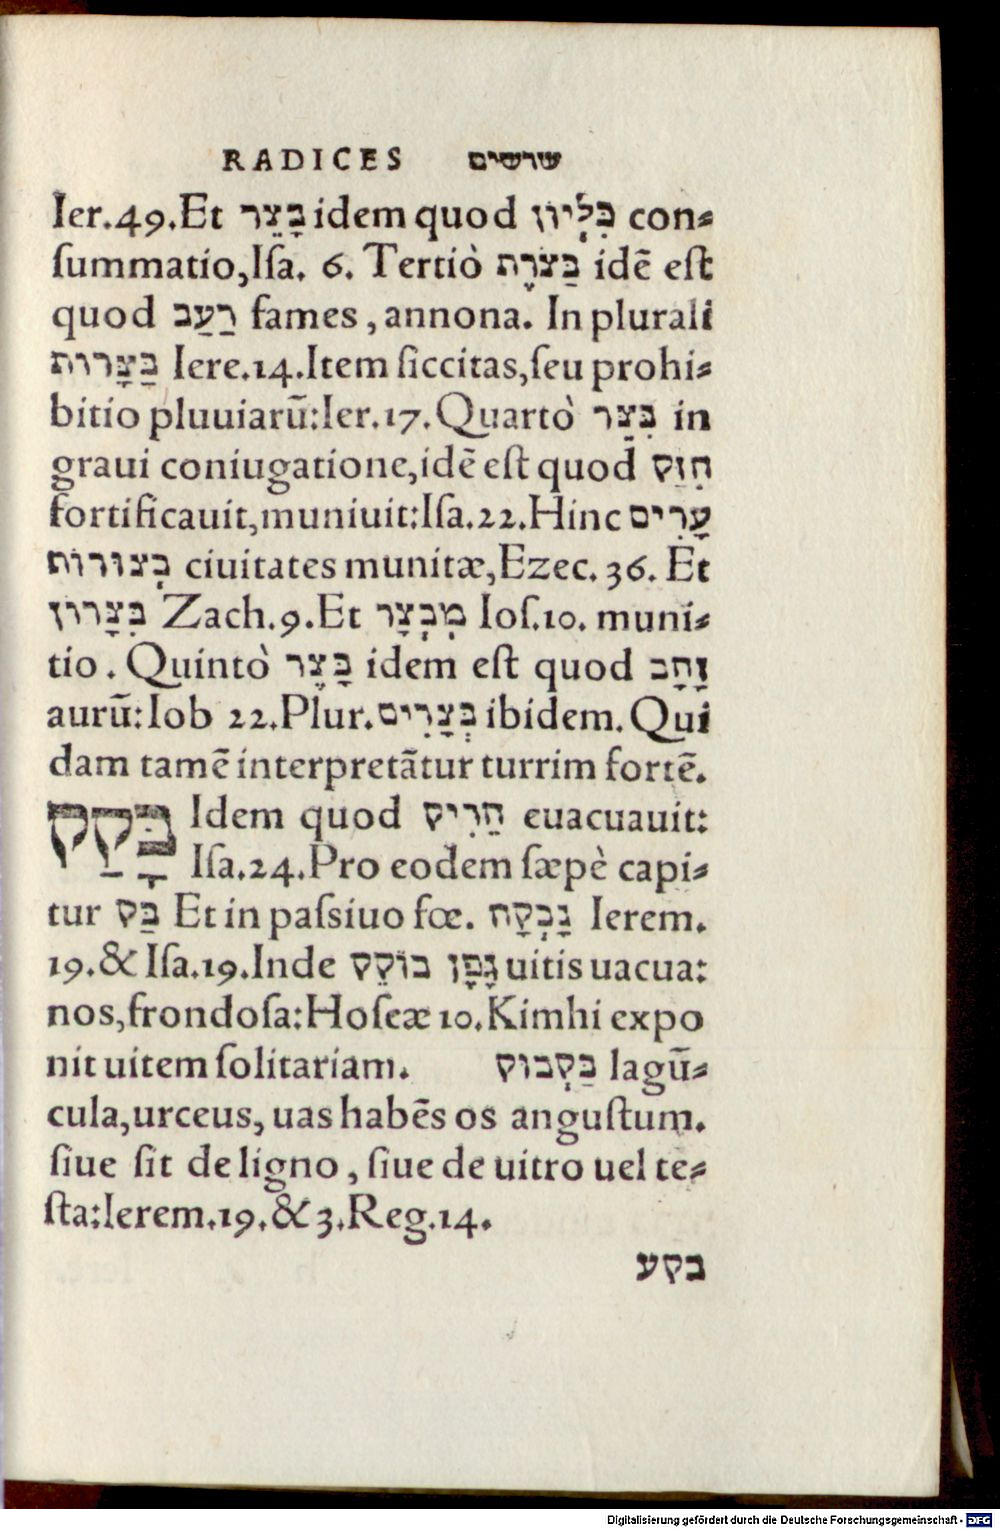 RADICES שרשים
Ier.49.Et בָּצֵר idem quod כִּלָּיוֹן con⸗
ſummatio,Iſa. 6. Tertiò בַּצֹּרֶת idē eſt
quod רָעָב fames, annona. In plurali
בַּצָּרוֹת Iere.14.Item ſiccitas,ſeu prohi⸗
bitio pluuiarū:Ier.17.Quartò בִּצֵּר in
graui coniugatione,idē eſt quod חִזֵּק
fortificauit,muniuit:Iſa.22.Hinc עָרִים
בְּצוּרוֹת ciuitates munitæ,Ezec. 36. Et
בִּצָּרוֹן Zach.9.Et מִבְצָר Ioſ.10. muni⸗
tio. Quintò בֶּצֶר idem est quod זָהָב
aurū:Iob 22.Plur.בְּצָרִים ibidem. Qui
dam tamē interpretātur turrim fortē.
בָּקַק Idem quod הֵרִיק euacuauit:
Iſa.24.Pro eodem ſæpè capi⸗
tur בַּק Et in paſsiuo fœ. נָבְקָה Ierem.
19.& Iſa.19.Inde גֶּפֶן בּוֹקֵק uitis uacua:
nos,frondoſa:Hoſeæ 10.Kimhi expo
nit uitem ſolitariam. בַּקְבּוּק lagū⸗
cula,urceus, uas habēs os anguſtum.
ſiue ſit de ligno, ſiue de uitro uel te⸗
ſta:Ierem.19.& 3.Reg.14.
בקע
Digitalisierung gefördert durch die Deutsche Forschungsgemeinschaft - DFG